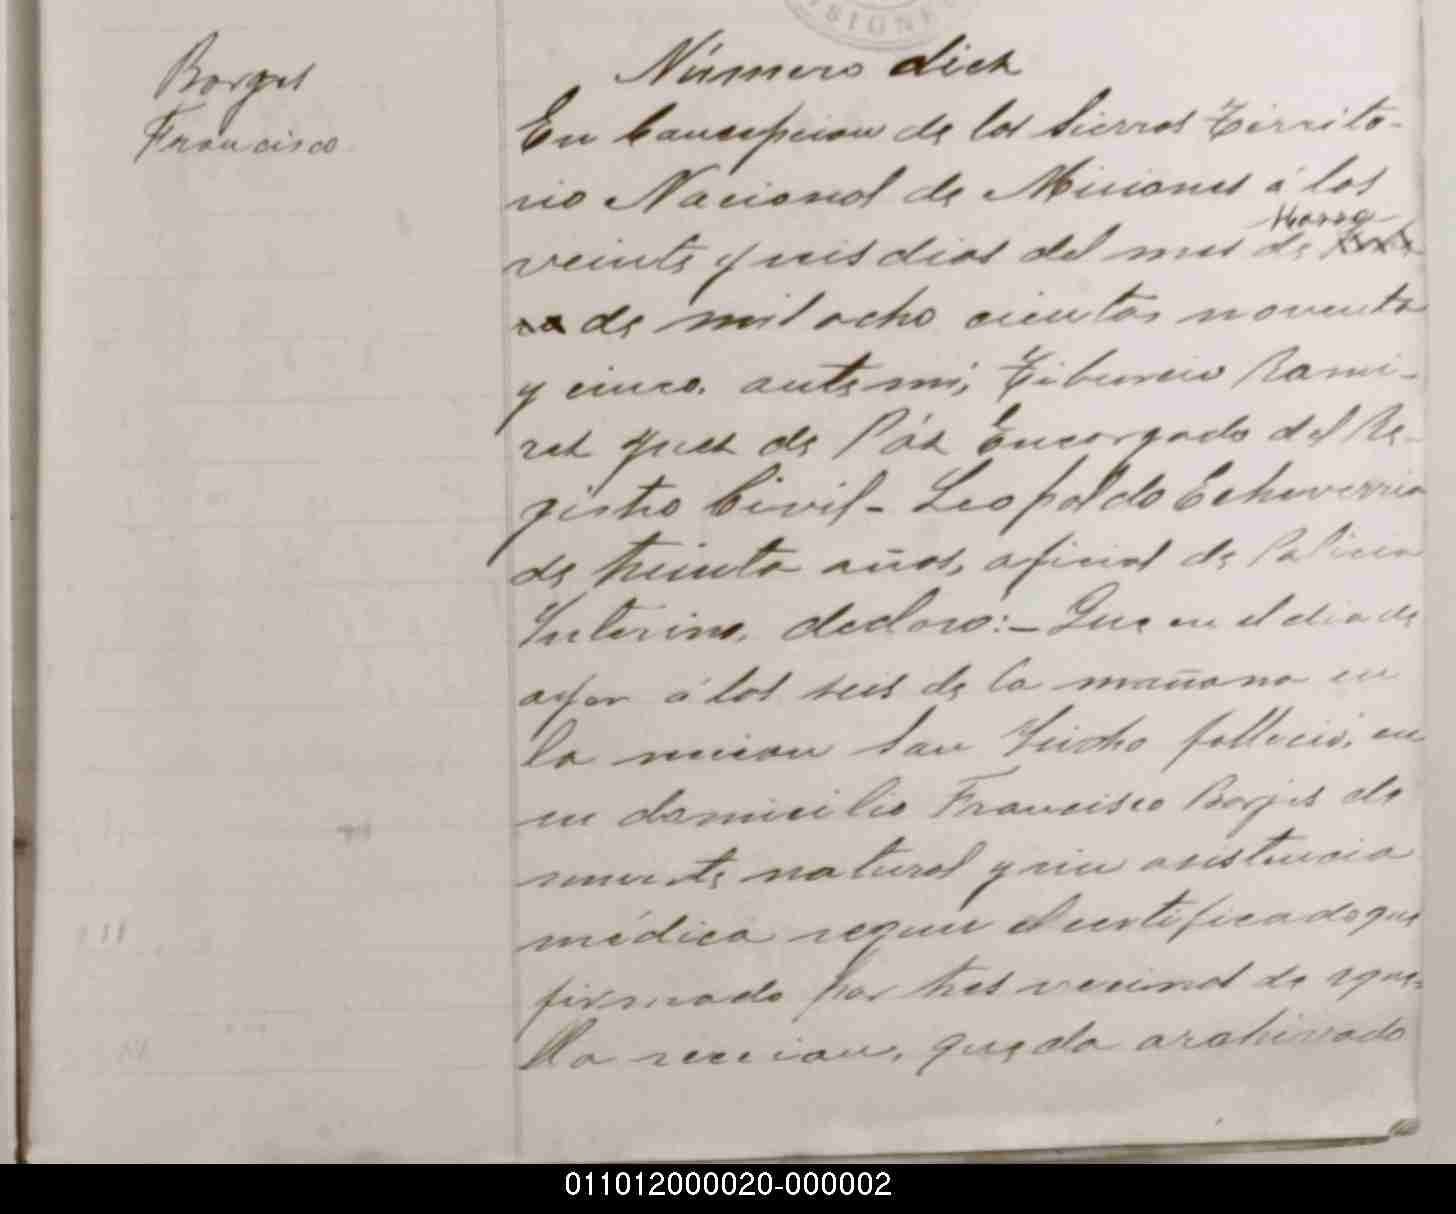 SIONE
Borges
Francisco
Número diez
En Concepcion de las Sierras Territo-
rio Nacional de Misiones á los
veinte y seis dias del mes de Marzo
de mil ocho cientos noventa
y cinco, ante mi, Tiburcio Rami-
rez Juez de Páz Encargado del Re-
gistro Civil - Leopoldo Echeverria
de treinta años, oficial de Policia
Interino, declaro: - Que en el dia de
ayer á las seis de la mañana en
la seccion San Isidro fallecio, en
su domicilio Francisco Borjes de
muerte natural y sin asistencia
médica segun el certificado que
firmado por tres vecinos de aque-
lla seccion, queda archivado
011012000020-000002